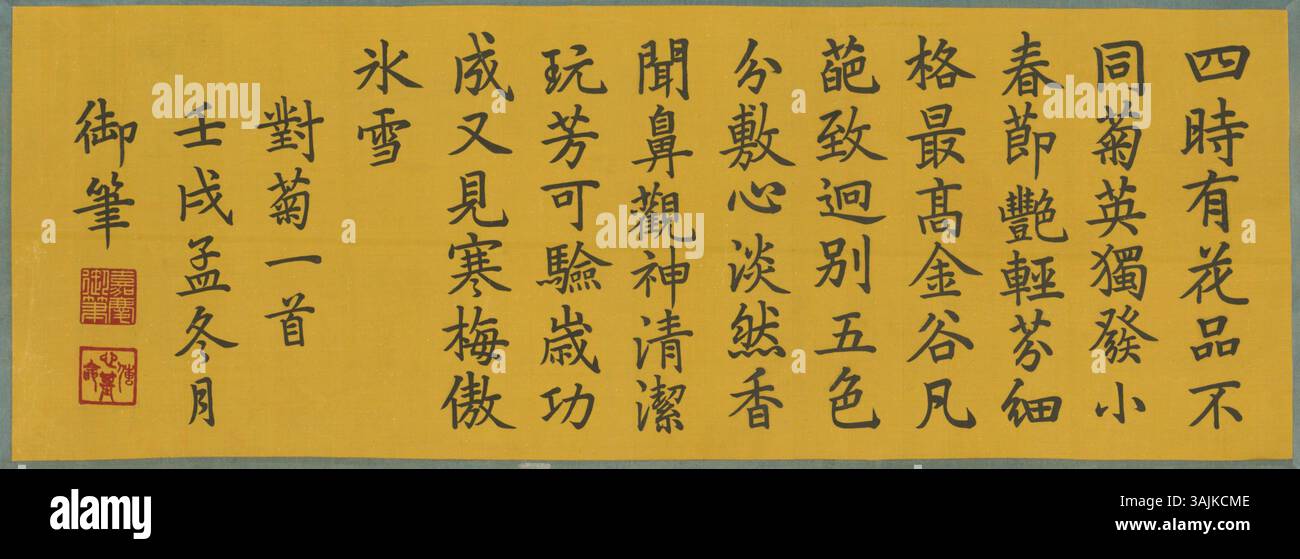 四時有花品不
同菊英獨發小
春節艷輕芬細
格最髙金谷凡
葩致迥别五色
分敷心淡然香
聞鼻觀神清潔
玩芳可驗歳功
成又見寒梅傲
氷雪
對菊一首
壬戌孟冬月
御筆
嘉慶御筆
alamy
3AJKCME
www.alamy.com